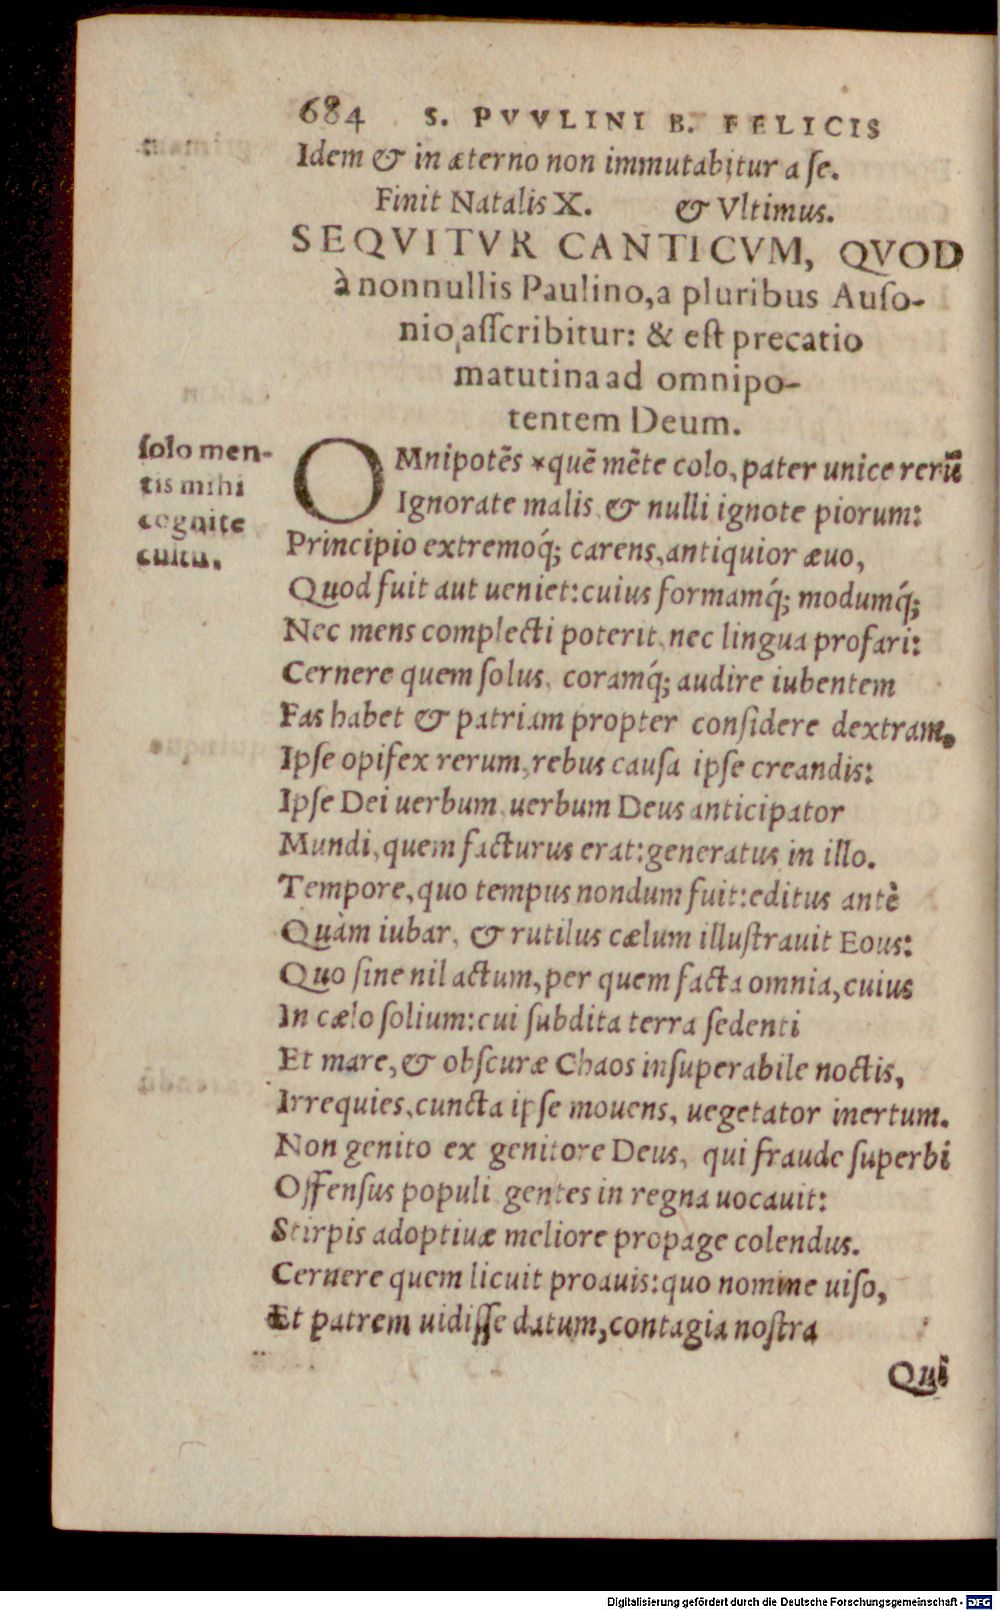 684 S. PVVLINI B. FELICIS
Idem & in æterno non immutabitur a ſe.
Finit Natalis X. & Vltimus.
SEQVITVR CANTICVM, QVOD
à nonnullis Paulino, a pluribus Auſo-
nio aſſcribitur: & eſt precatio
matutina ad omnipo-
tentem Deum.
ſolo men-
tis mihi
cognite
cultu.
OMnipotẽs *quẽ mẽte colo, pater unice rerũ
Ignorate malis & nulli ignote piorum:
Principio extremoq́; carens, antiquior æuo,
Quod fuit aut ueniet: cuius formamq́; modumq́;
Nec mens complecti poterit, nec lingua profari:
Cernere quem ſolus, coramq́; audire iubentem
Fas habet & patriam propter conſidere dextram.
Ipſe opifex rerum, rebus cauſa ipſe creandis:
Ipſe Dei uerbum, uerbum Deus anticipator
Mundi, quem facturus erat: generatus in illo.
Tempore, quo tempus nondum fuit: editus antè
Quàm iubar, & rutilus cælum illuſtrauit Eous:
Quo ſine nil actum, per quem facta omnia, cuius
In cælo ſolium: cui ſubdita terra ſedenti
Et mare, & obſcuræ Chaos inſuperabile noctis,
Irrequies, cuncta ipſe mouens, uegetator inertum.
Non genito ex genitore Deus, qui fraude ſuperbi
Offenſus populi gentes in regna uocauit:
Stirpis adoptiuæ meliore propage colendus.
Cernere quem licuit proauis: quo nomine uiſo,
Et patrem uidiſſe datum, contagia noſtra
Qui
Digitalisierung gefördert durch die Deutsche Forschungsgemeinschaft - DFG